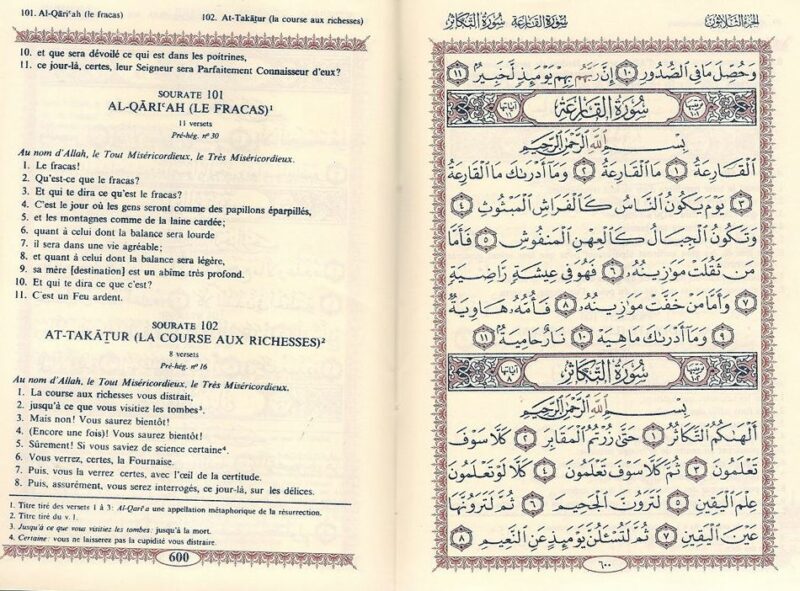 101. Al-Qāriʿah (le fracas)
102. At-Takāṯur (la course aux richesses)
10. et que sera dévoilé ce qui est dans les poitrines,
11. ce jour-là, certes, leur Seigneur sera Parfaitement Connaisseur d'eux?
SOURATE 101
AL-QĀRIʿAH (LE FRACAS)¹
11 versets
Pré-hég. nº 30
Au nom d'Allah, le Tout Miséricordieux, le Très Miséricordieux.
1. Le fracas!
2. Qu'est-ce que le fracas?
3. Et qui te dira ce qu'est le fracas?
4. C'est le jour où les gens seront comme des papillons éparpillés,
5. et les montagnes comme de la laine cardée;
6. quant à celui dont la balance sera lourde
7. il sera dans une vie agréable;
8. et quant à celui dont la balance sera légère,
9. sa mère [destination] est un abîme très profond.
10. Et qui te dira ce que c'est?
11. C'est un Feu ardent.
SOURATE 102
AT-TAKĀṮUR (LA COURSE AUX RICHESSES)²
8 versets
Pré-hég. nº 16
Au nom d'Allah, le Tout Miséricordieux, le Très Miséricordieux.
1. La course aux richesses vous distrait,
2. jusqu'à ce que vous visitiez les tombes³.
3. Mais non! Vous saurez bientôt!
4. (Encore une fois)! Vous saurez bientôt!
5. Sûrement! Si vous saviez de science certaine⁴.
6. Vous verrez, certes, la Fournaise.
7. Puis, vous la verrez certes, avec l'œil de la certitude.
8. Puis, assurément, vous serez interrogés, ce jour-là, sur les délices.
1. Titre tiré des versets 1 à 3: Al-Qariʿa une appellation métaphorique de la résurrection.
2. Titre tiré du v. 1.
3. Jusqu'à ce que vous visitiez les tombes: jusqu'à la mort.
4. Certaine: vous ne laisseriez pas la cupidité vous distraire.
600
الجزء الثلاثون
سورة القارعة سورة التكاثر
وَحُصِّلَ مَا فِي الصُّدُورِ ١٠ إِنَّ رَبَّهُم بِهِمْ يَوْمَئِذٍ لَّخَبِيرٌ ١١
سُورَةُ القَارِعَةِ
بِسْمِ اللَّهِ الرَّحْمَٰنِ الرَّحِيمِ
الْقَارِعَةُ ١ مَا الْقَارِعَةُ ٢ وَمَا أَدْرَىٰكَ مَا الْقَارِعَةُ
٣ يَوْمَ يَكُونُ النَّاسُ كَالْفَرَاشِ الْمَبْثُوثِ ٤
وَتَكُونُ الْجِبَالُ كَالْعِهْنِ الْمَنفُوشِ ٥ فَأَمَّا
مَن ثَقُلَتْ مَوَٰزِينُهُ ٦ فَهُوَ فِي عِيشَةٍ رَّاضِيَةٍ
٧ وَأَمَّا مَنْ خَفَّتْ مَوَٰزِينُهُ ٨ فَأُمُّهُ هَاوِيَةٌ
٩ وَمَا أَدْرَىٰكَ مَا هِيَهْ ١٠ نَارٌ حَامِيَةٌ ١١
سُورَةُ التَّكَاثُرِ
بِسْمِ اللَّهِ الرَّحْمَٰنِ الرَّحِيمِ
أَلْهَىٰكُمُ التَّكَاثُرُ ١ حَتَّىٰ زُرْتُمُ الْمَقَابِرَ ٢ كَلَّا سَوْفَ
تَعْلَمُونَ ٣ ثُمَّ كَلَّا سَوْفَ تَعْلَمُونَ ٤ كَلَّا لَوْ تَعْلَمُونَ
عِلْمَ الْيَقِينِ ٥ لَتَرَوُنَّ الْجَحِيمَ ٦ ثُمَّ لَتَرَوُنَّهَا
عَيْنَ الْيَقِينِ ٧ ثُمَّ لَتُسْـَٔلُنَّ يَوْمَئِذٍ عَنِ النَّعِيمِ ٨
٦٠٠